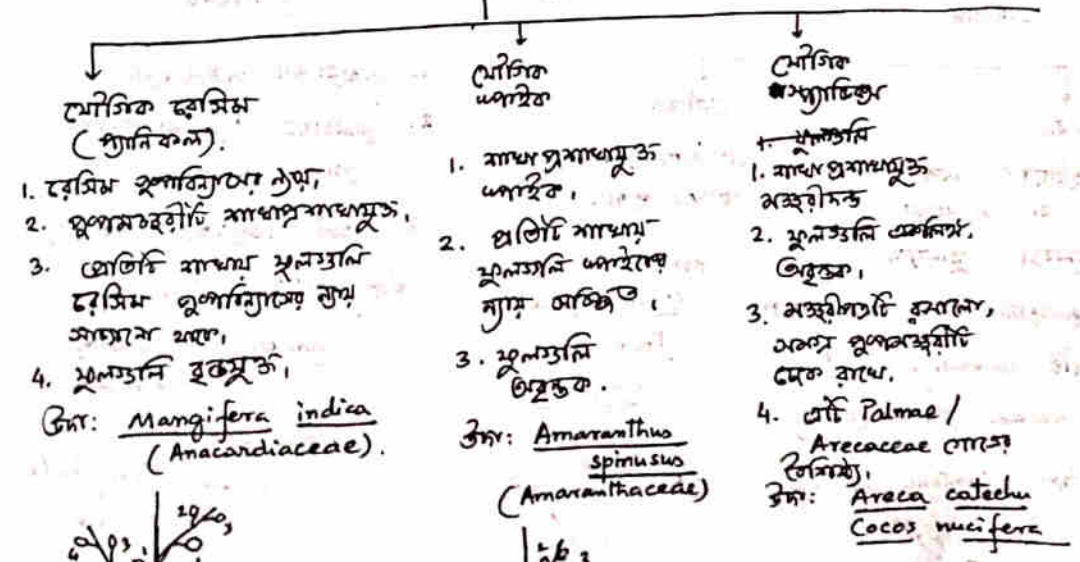 যৌগিক রেসিম
(প্যানিকল).
1. রেসিম পুষ্পবিন্যাসের ন্যায়,
2. পুষ্পমঞ্জরীটি শাখাপ্রশাখাযুক্ত,
3. প্রতিটি শাখায় ফুলগুলি
রেসিম পুষ্পবিন্যাসের ন্যায়
সাজানো থাকে,
4. ফুলগুলি বৃন্তযুক্ত,
উদা: Mangifera indica
(Anacardiaceae).
2
3
4
3
1
যৌগিক
স্পাইক
1. শাখাপ্রশাখাযুক্ত
স্পাইক,
2. প্রতিটি শাখায়
ফুলগুলি স্পাইকের
ন্যায় সজ্জিত,
3. ফুলগুলি
অবৃন্তক.
উদা: Amaranthus
spinusus
(Amaranthaceae)
2
3
যৌগিক
স্প্যাডিক্স
1. ফুলগুলি
1. শাখাপ্রশাখাযুক্ত
মঞ্জরীদন্ড
2. ফুলগুলি একলিঙ্গ,
অবৃন্তক,
3. মঞ্জরীপত্রটি রসালো,
সমগ্র পুষ্পমঞ্জরীটি
ঢেকে রাখে.
4. এটি Palmae /
Arecaceae গোত্রের
বৈশিষ্ট্য,
উদা: Areca catechu
Cocos nucifera